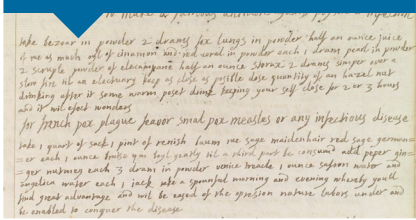 take bezoar in powder 2 drams fox lungs in powder half an ounce juice
if me as much oyl of cinamon and red corel in powder each 1 dram pearl in powder
2 scruple powder of elecampane half an ounce storax 2 drams simper over a
slow fire til an electuary keep as close as posible dose quantity of an hazel nut
drinking after it some worm poset drink keeping your self close for 2 or 3 hours
and it wil efect wonders
for french pox plague feavor smal pox measles or any infectious disease
take 1 quart of sack 1 pint of renish baum rue sage maidenhair red sage germon=
=er each 1 ounce bruise ym boyl gently til a third part be consumd add peper gin=
=ger nutmeg each 3 drams in powder venice treacle 1 ounce safron water and
angelica water each 1 jack take a spoonful morning and evening whereby you'l
find great advantage and wil be eased of the opresion nature labors under and
be enabled to conquer the disease